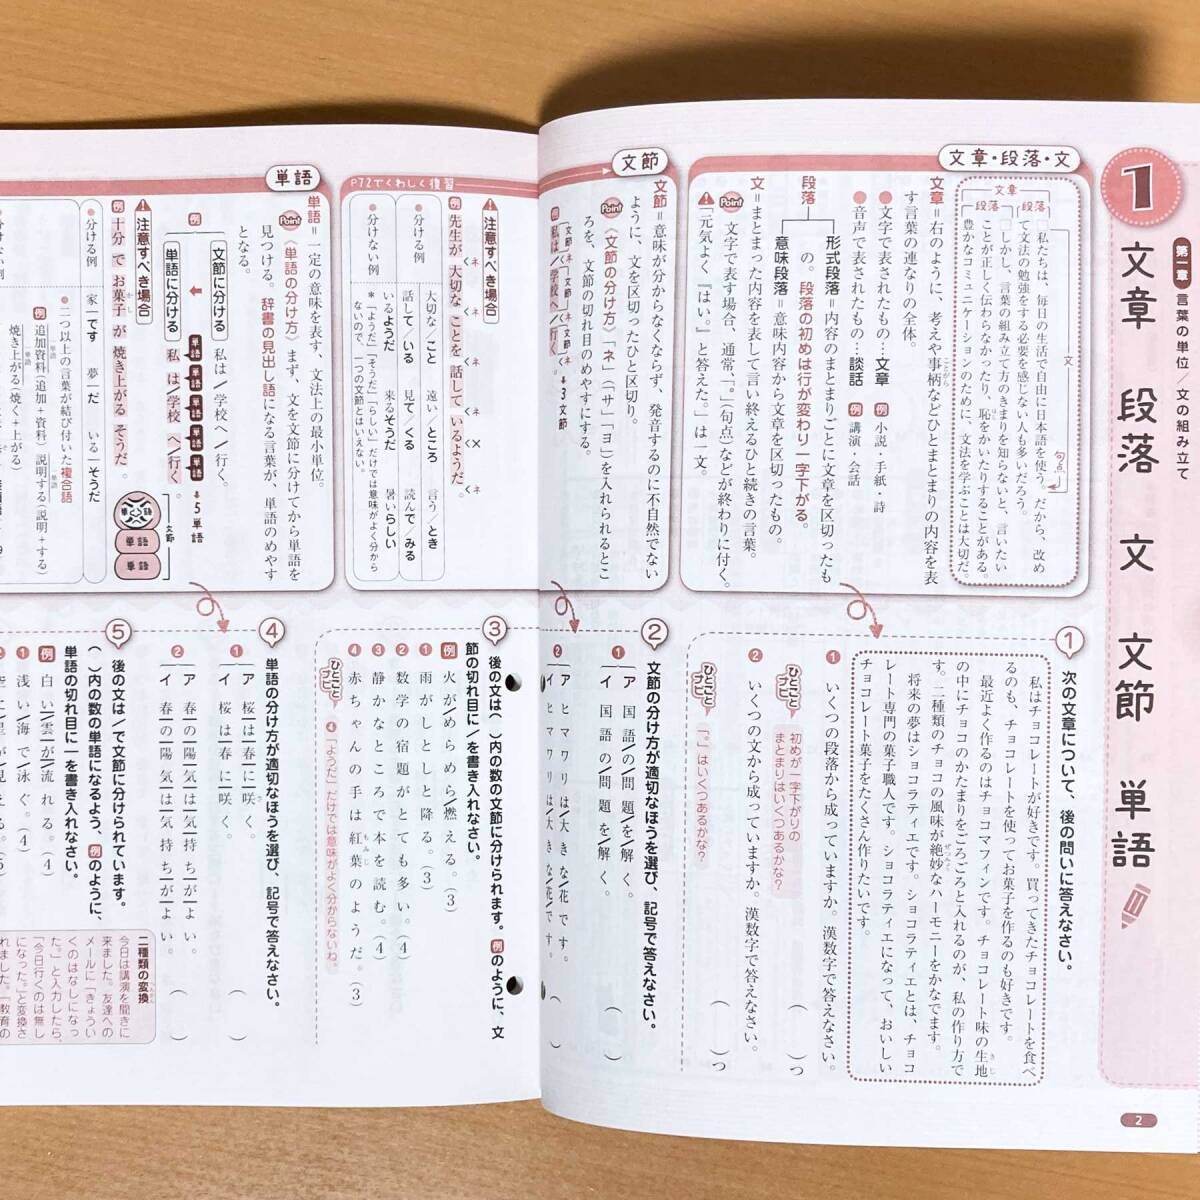 1
第一章 言葉の単位／文の組み立て
文章 段落 文 文節 単語
文章・段落・文
文章
段落
段落
文
句点
私たちは、毎日の生活で自由に日本語を使う。だから、改め
て文法の勉強をする必要を感じない人も多いだろう。
しかし、言葉の組み立て方のきまりを知らないと、言いたい
ことが正しく伝わらなかったり、恥をかいたりすることがある。
豊かなコミュニケーションのために、文法を学ぶことは大切だ。
文章＝右のように、考えや事柄などひとまとまりの内容を表
す言葉の連なりの全体。
●文字で表されたもの…文章 例 小説・手紙・詩
●音声で表されたもの…談話 例 講演・会話
段落
形式段落＝内容のまとまりごとに文章を区切ったも
の。段落の初めは行が変わり一字下がる。
意味段落＝意味内容から文章を区切ったもの。
文＝まとまった内容を表して言い終えるひと続きの言葉。
Point 文字で表す場合、通常、「。」（句点）などが終わりに付く。
「元気よく『はい。』と答えた。」は一文。
文節
文節＝意味が分からなくならず、発音するのに不自然でない
ように、文を区切ったひと区切り。
Point 〈文節の分け方〉「ネ」（「サ」「ヨ」）を入れられるとこ
ろを、文節の切れ目のめやすにする。
文節 文節 文節
例 私は／学校へ／行く。
ネ ネ ネ
3文節
P72でくわしく復習
注意すべき場合
例 先生が 大切な ことを 話して いるようだ。
ネ ネ ネ × ネ
●分ける例
大切な／こと 遠い／ところ 言う／とき
話して／いる 見て／くる 読んで／みる
●分けない例
いるようだ 来るそうだ 暑いらしい
＊「ようだ」「そうだ」「らしい」だけでは意味がよく分から
ないので、一つの文節とはいえない。
単語
単語＝一定の意味を表す、文法上の最小単位。
Point 〈単語の分け方〉まず、文を文節に分けてから単語を
見つける。辞書の見出し語になる言葉が、単語のめやす
となる。
例
文節に分ける 私は／学校へ／行く。
単語 単語 単語 単語 単語 5単語
単語に分ける 私｜は／学校｜へ／行く。
文節
単語
単語
単語
注意すべき場合
例 十分 で お菓子 が 焼き上がる そうだ。
●分ける例 家｜です 夢｜だ いる｜そうだ
●二つ以上の言葉が結び付いた複合語
例 追加資料（追加＋資料） 説明する（説明＋する）
焼き上がる（焼く＋上がる）
1 次の文章について、後の問いに答えなさい。
私はチョコレートが好きです。買ってきたチョコレートを食べ
るのも、チョコレートを使ってお菓子を作るのも好きです。
最近よく作るのはチョコマフィンです。チョコレート味の生地
の中にチョコのかたまりをごろごろと入れるのが、私の作り方で
す。二種類のチョコの風味が絶妙なハーモニーをかなでます。
将来の夢はショコラティエです。ショコラティエとは、チョコ
レート専門の菓子職人です。ショコラティエになって、おいしい
チョコレート菓子をたくさん作りたいです。
❶ いくつの段落から成っていますか。漢数字で答えなさい。
（ ）つ
ひとことナビ 初めが一字下がりの
まとまりはいくつあるかな？
❷ いくつの文から成っていますか。漢数字で答えなさい。
（ ）つ
ひとことナビ 「。」はいくつあるかな？
2 文節の分け方が適切なほうを選び、記号で答えなさい。
❶ ア 国語／の／問題／を／解く。
イ 国語の／問題を／解く。 （ ）
❷ ア ヒマワリは／大きな／花です。
イ ヒマワリは／大きな／花／です。 （ ）
3 後の文は（ ）内の数の文節に分けられます。例のように、文
節の切れ目に／を書き入れなさい。
例 火が／めらめら／燃える。（3）
❶ 雨がしとしと降る。（3）
❷ 数学の宿題がとても多い。（4）
❸ 静かなところで本を読む。（4）
❹ 赤ちゃんの手は紅葉のようだ。（3）
ひとことナビ ❹「ようだ」だけでは意味がよく分からないね。
4 単語の分け方が適切なほうを選び、記号で答えなさい。
❶ ア 桜｜は｜春｜に｜咲く。
イ 桜は｜春に｜咲く。 （ ）
❷ ア 春｜の｜陽気｜は｜気持ち｜が｜よい。
イ 春の｜陽気は｜気持ちが｜よい。 （ ）
5 後の文は／で文節に分けられています。
（ ）内の数の単語になるよう、例のように、
単語の切れ目に｜を書き入れなさい。
例 白い／雲｜が／流れる。（4）
❶ 浅い／海で／泳ぐ。（4）
二種類の変換
今日は講演を聞きに
来ました。友達への
メールに「きょうい
くのはなしになっ
た。」と入力したら、
「今日行くのは無し
になった。」と変換さ
れました。「教育の
2